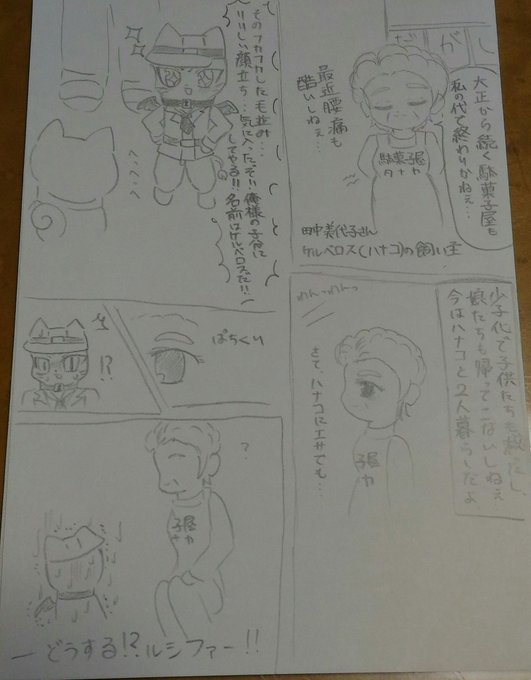 だがし
大正から続く駄菓子屋も
私の代で終わりかねぇ…
最近腰痛も
酷いしねぇ…
駄菓子屋
タナカ
田中美代子さん
ケルベロス(ハナコ)の飼い主
少子化で子供たちも減ったし
娘たちも帰ってこないしねぇ…
今はハナコと2人暮らしだよ
わんっわんっ
さて、ハナコにエサでも…
子屋
カ
そのフカフカした毛並み…
りりしい顔立ち…気に入ったぞ!!俺様の子分に
してやる!!名前はケルベロスだ!!
へへへっ
ぱちくり
!?
?
子屋
ナカ
―どうする!?ルシファー!!